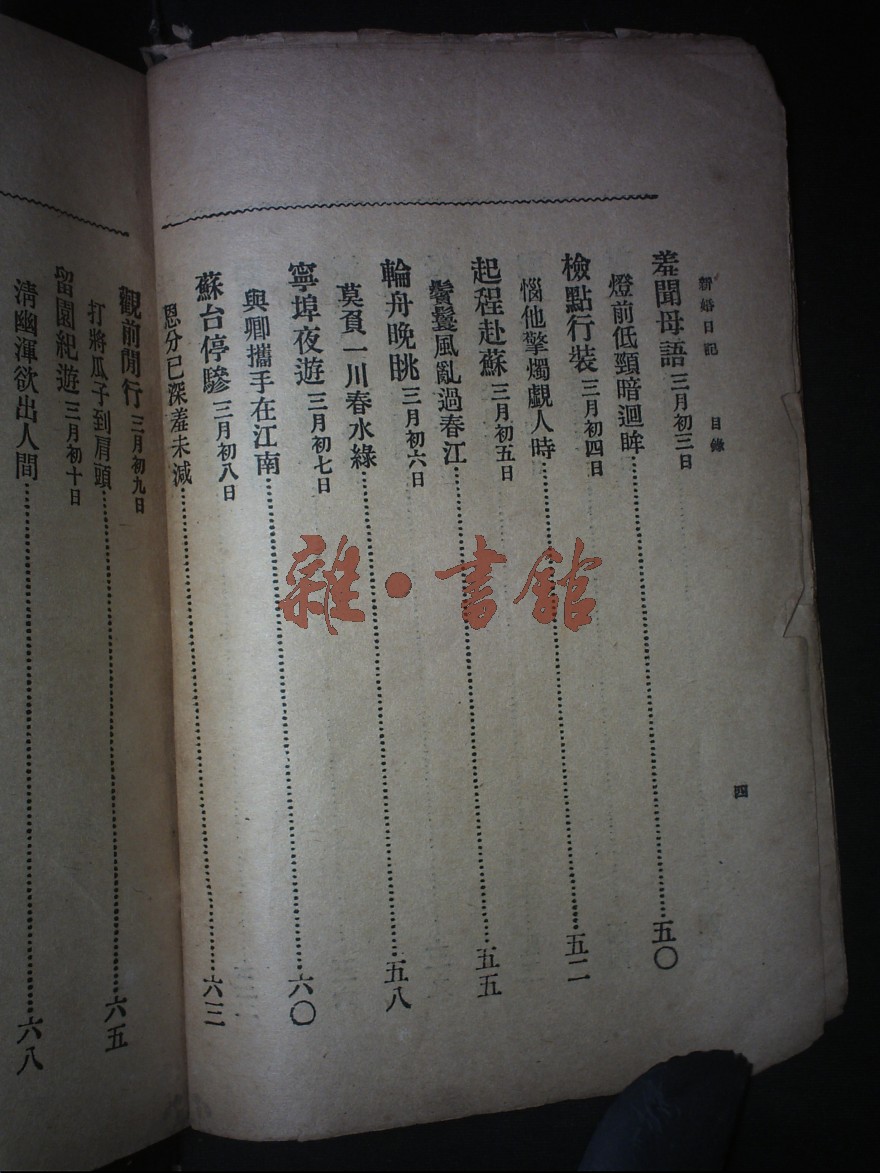 新婚日記 目錄 四
羞聞母語 三月初三日
燈前低頸暗迴眸⋯⋯五〇
檢點行裝 三月初四日
惱他擎燭覷人時⋯⋯五二
起程赴蘇 三月初五日
鬢鬟風亂過春江⋯⋯五五
輪舟晚眺 三月初六日
莫負一川春水綠⋯⋯五八
寧埠夜遊 三月初七日
與卿攜手在江南⋯⋯六〇
蘇台停驂 三月初八日
恩分已深羞未減⋯⋯六三
觀前閒行 三月初九日
打將瓜子到肩頭⋯⋯六五
留園紀遊 三月初十日
清幽渾欲出人間⋯⋯六八
雜·書館